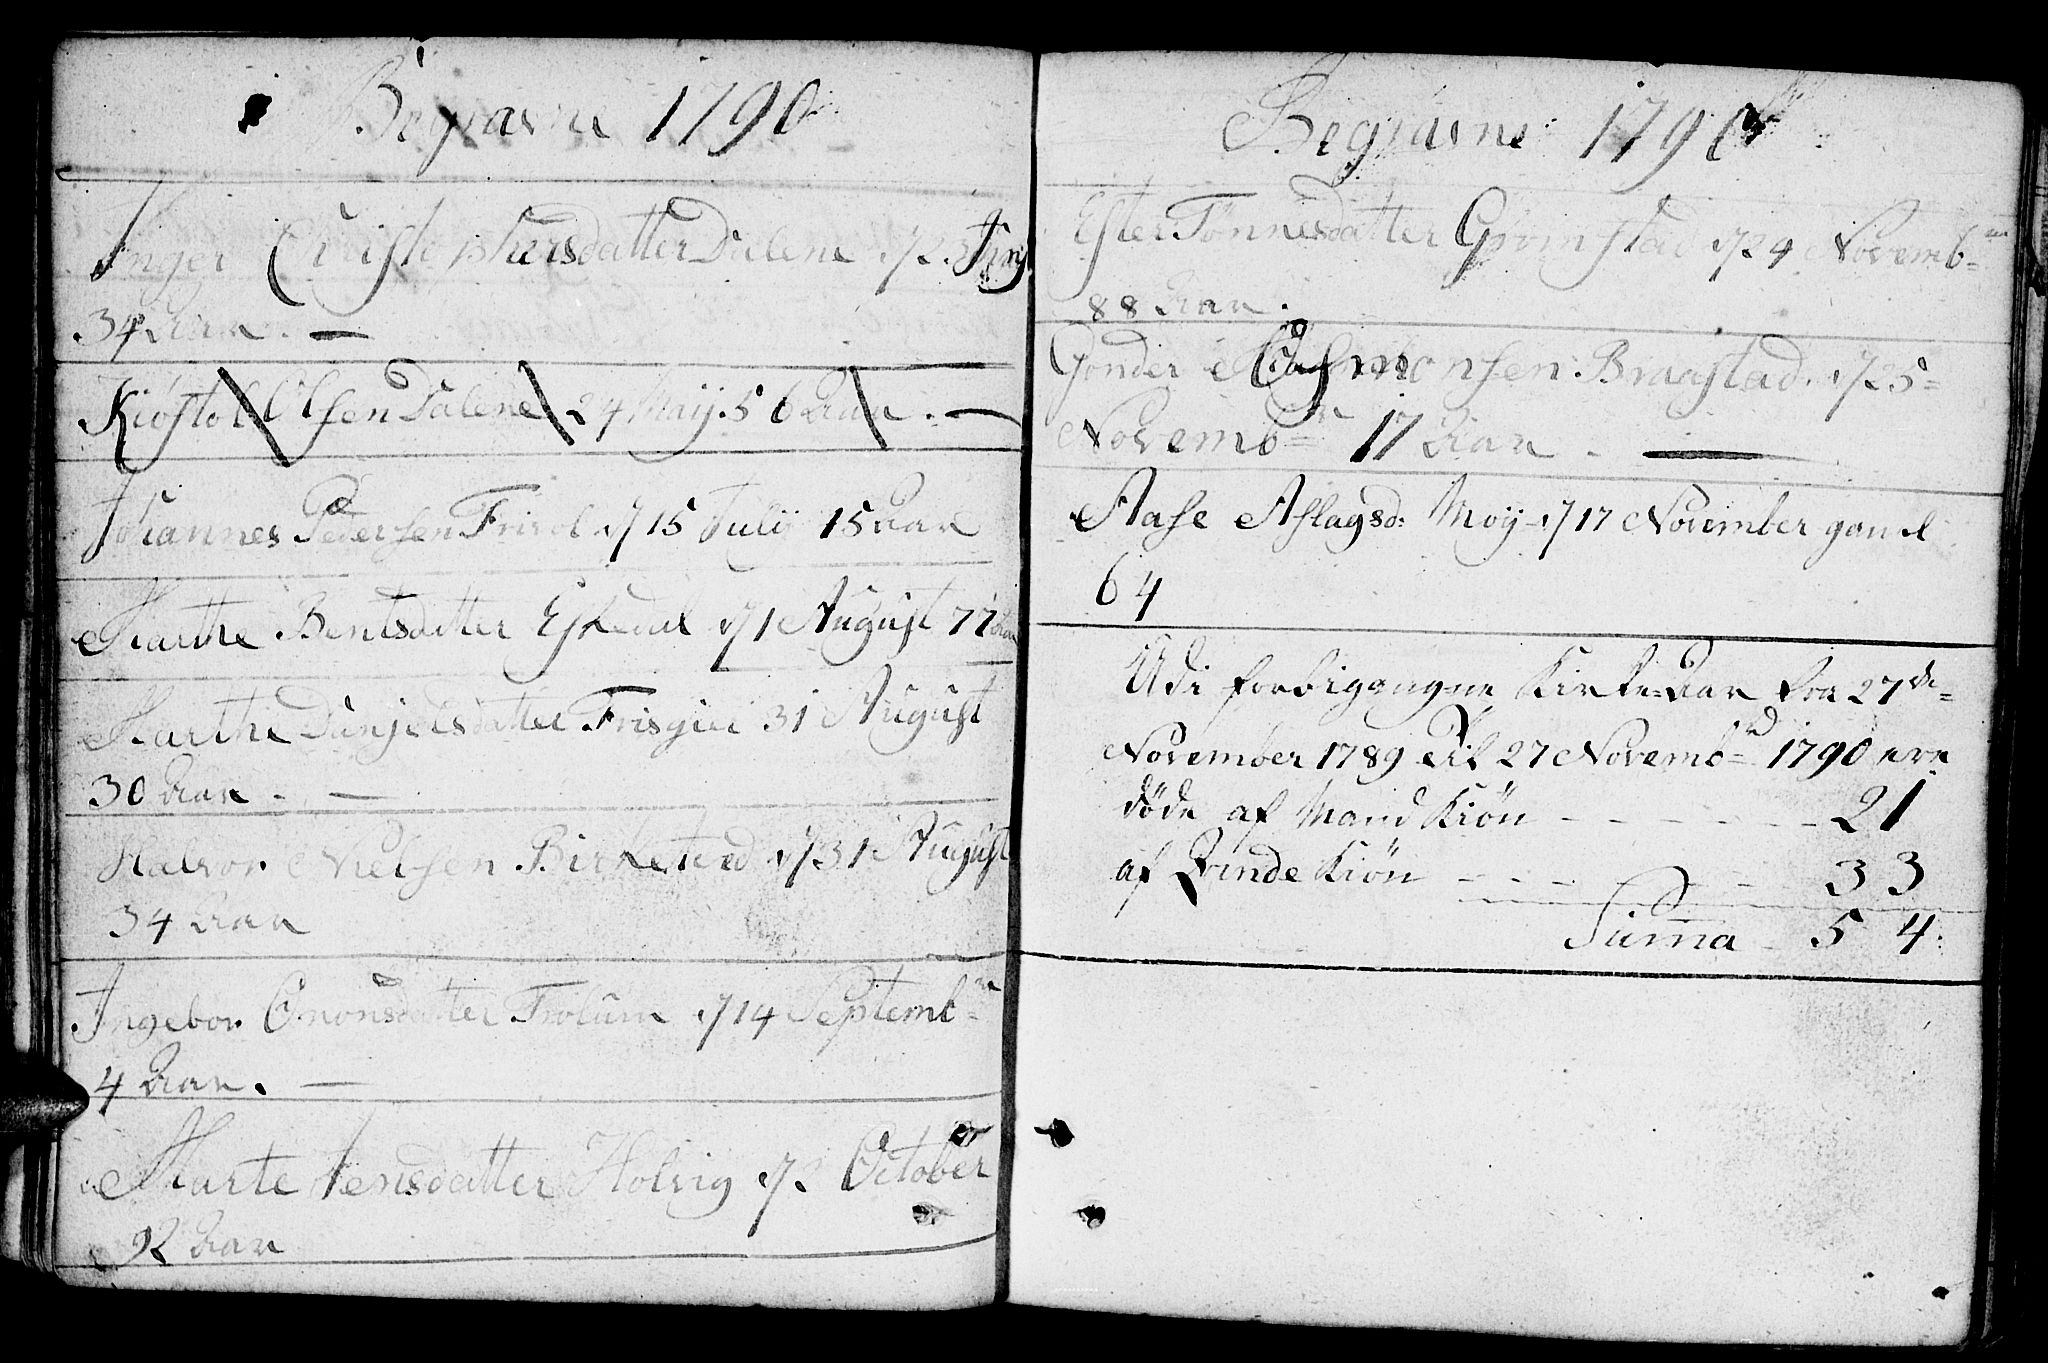 Begravne 1790
Inger Christophersdatter Dalene d 2
34 Aar. —
Kiøstol Olsen Dalene 24 Maij. 56 Aar. —
Johannes Pedersen Frivol d 15 Julij 15 Aar
Marthe Bentsdatter Eskedal d 1 August 77 Aar
Marthe Danjelsdatter 31 August
30 Aar. —
Halvor Nielsen Birketved d 31 August
34 Aar
Ingebor Omonsdatter d 14 Septembr
4 Aar. —
Marte Jensdatter Holvig d 2 October
92 Aar
Begravne 1790
Ester Tønnesdatter Gromstad d 24 Novembr
88 Aar.
Gonder Braastad. d 25
Novembr 17 Aar. —
Aase Aslagsd: Moÿ d 17 November gaml
64
Udi forbigangne Kirke-Aar fra 27de
November 1789 til 27 Novembr 1790 ere
døde af Mand Kiön - - - - - - 21
af Qvinde Kiön - - - - - 33
Sum̄a - 54.